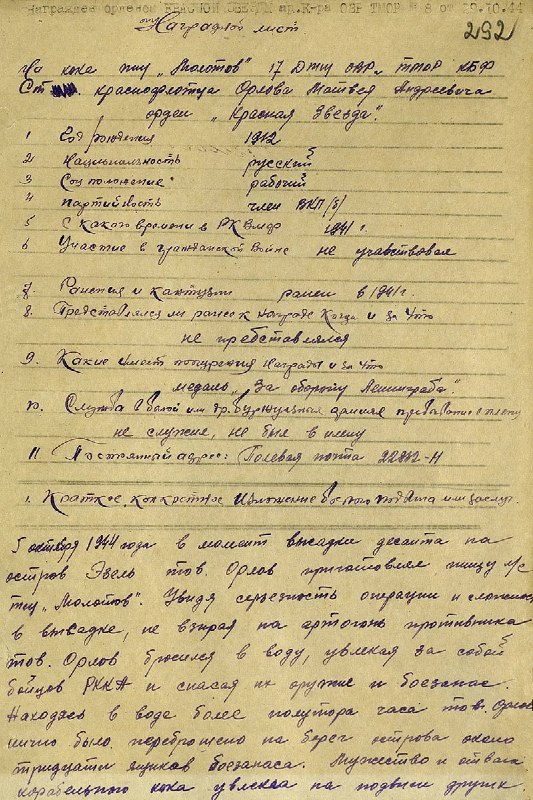 Награжден орденом КРАСНОЙ ЗВЕЗДЫ пр. К-ра ОВР ТМОР № 8 от 29.10.44
292
Наградной лист
На кока тщ „Молотов" 17 Дтщ ОВР ТМОР КБФ
Ст краснофлотца Орлова Матвея Андреевича
орден „Красная Звезда".
1 Год рождения 1912
2 Национальность русский
3 Соц положение рабочий
4 партийность член ВКП/б/
5 С какого времени в РКВМФ 1941 г.
6 Участие в гражданской войне не учавствовал
7. Ранения и контузии ранен в 1941 г
8. Представлялся ли ранее к награде Когда и за что
не представлялся
9. Какие имеет поощрения награды и за что
медаль „За оборону Ленинграда"
10. Служба в белой или др. буржуазных армиях пребывание в плену
не служил, не был в плену
11 Постоянный адрес: Полевая почта 22932-Н
1. Краткое, конкретное изложение боевого подвига или заслуг
5 октября 1944 года в момент высадки десанта на
остров Эзель тов. Орлов приготовлял пищу л/с
тщ „Молотов". Увидя серьезность операции и
в высадке, не взирая на артогонь противника
тов. Орлов бросился в воду, увлекая за собой
бойцов РККА и спасая их оружие и боезапас.
Находясь в воде более полутора часа тов. Орлов
лично было переброшено на берег острова около
тридцати ящиков боезапаса. Мужество и отвага
корабельного кока увлекла на подвиги других